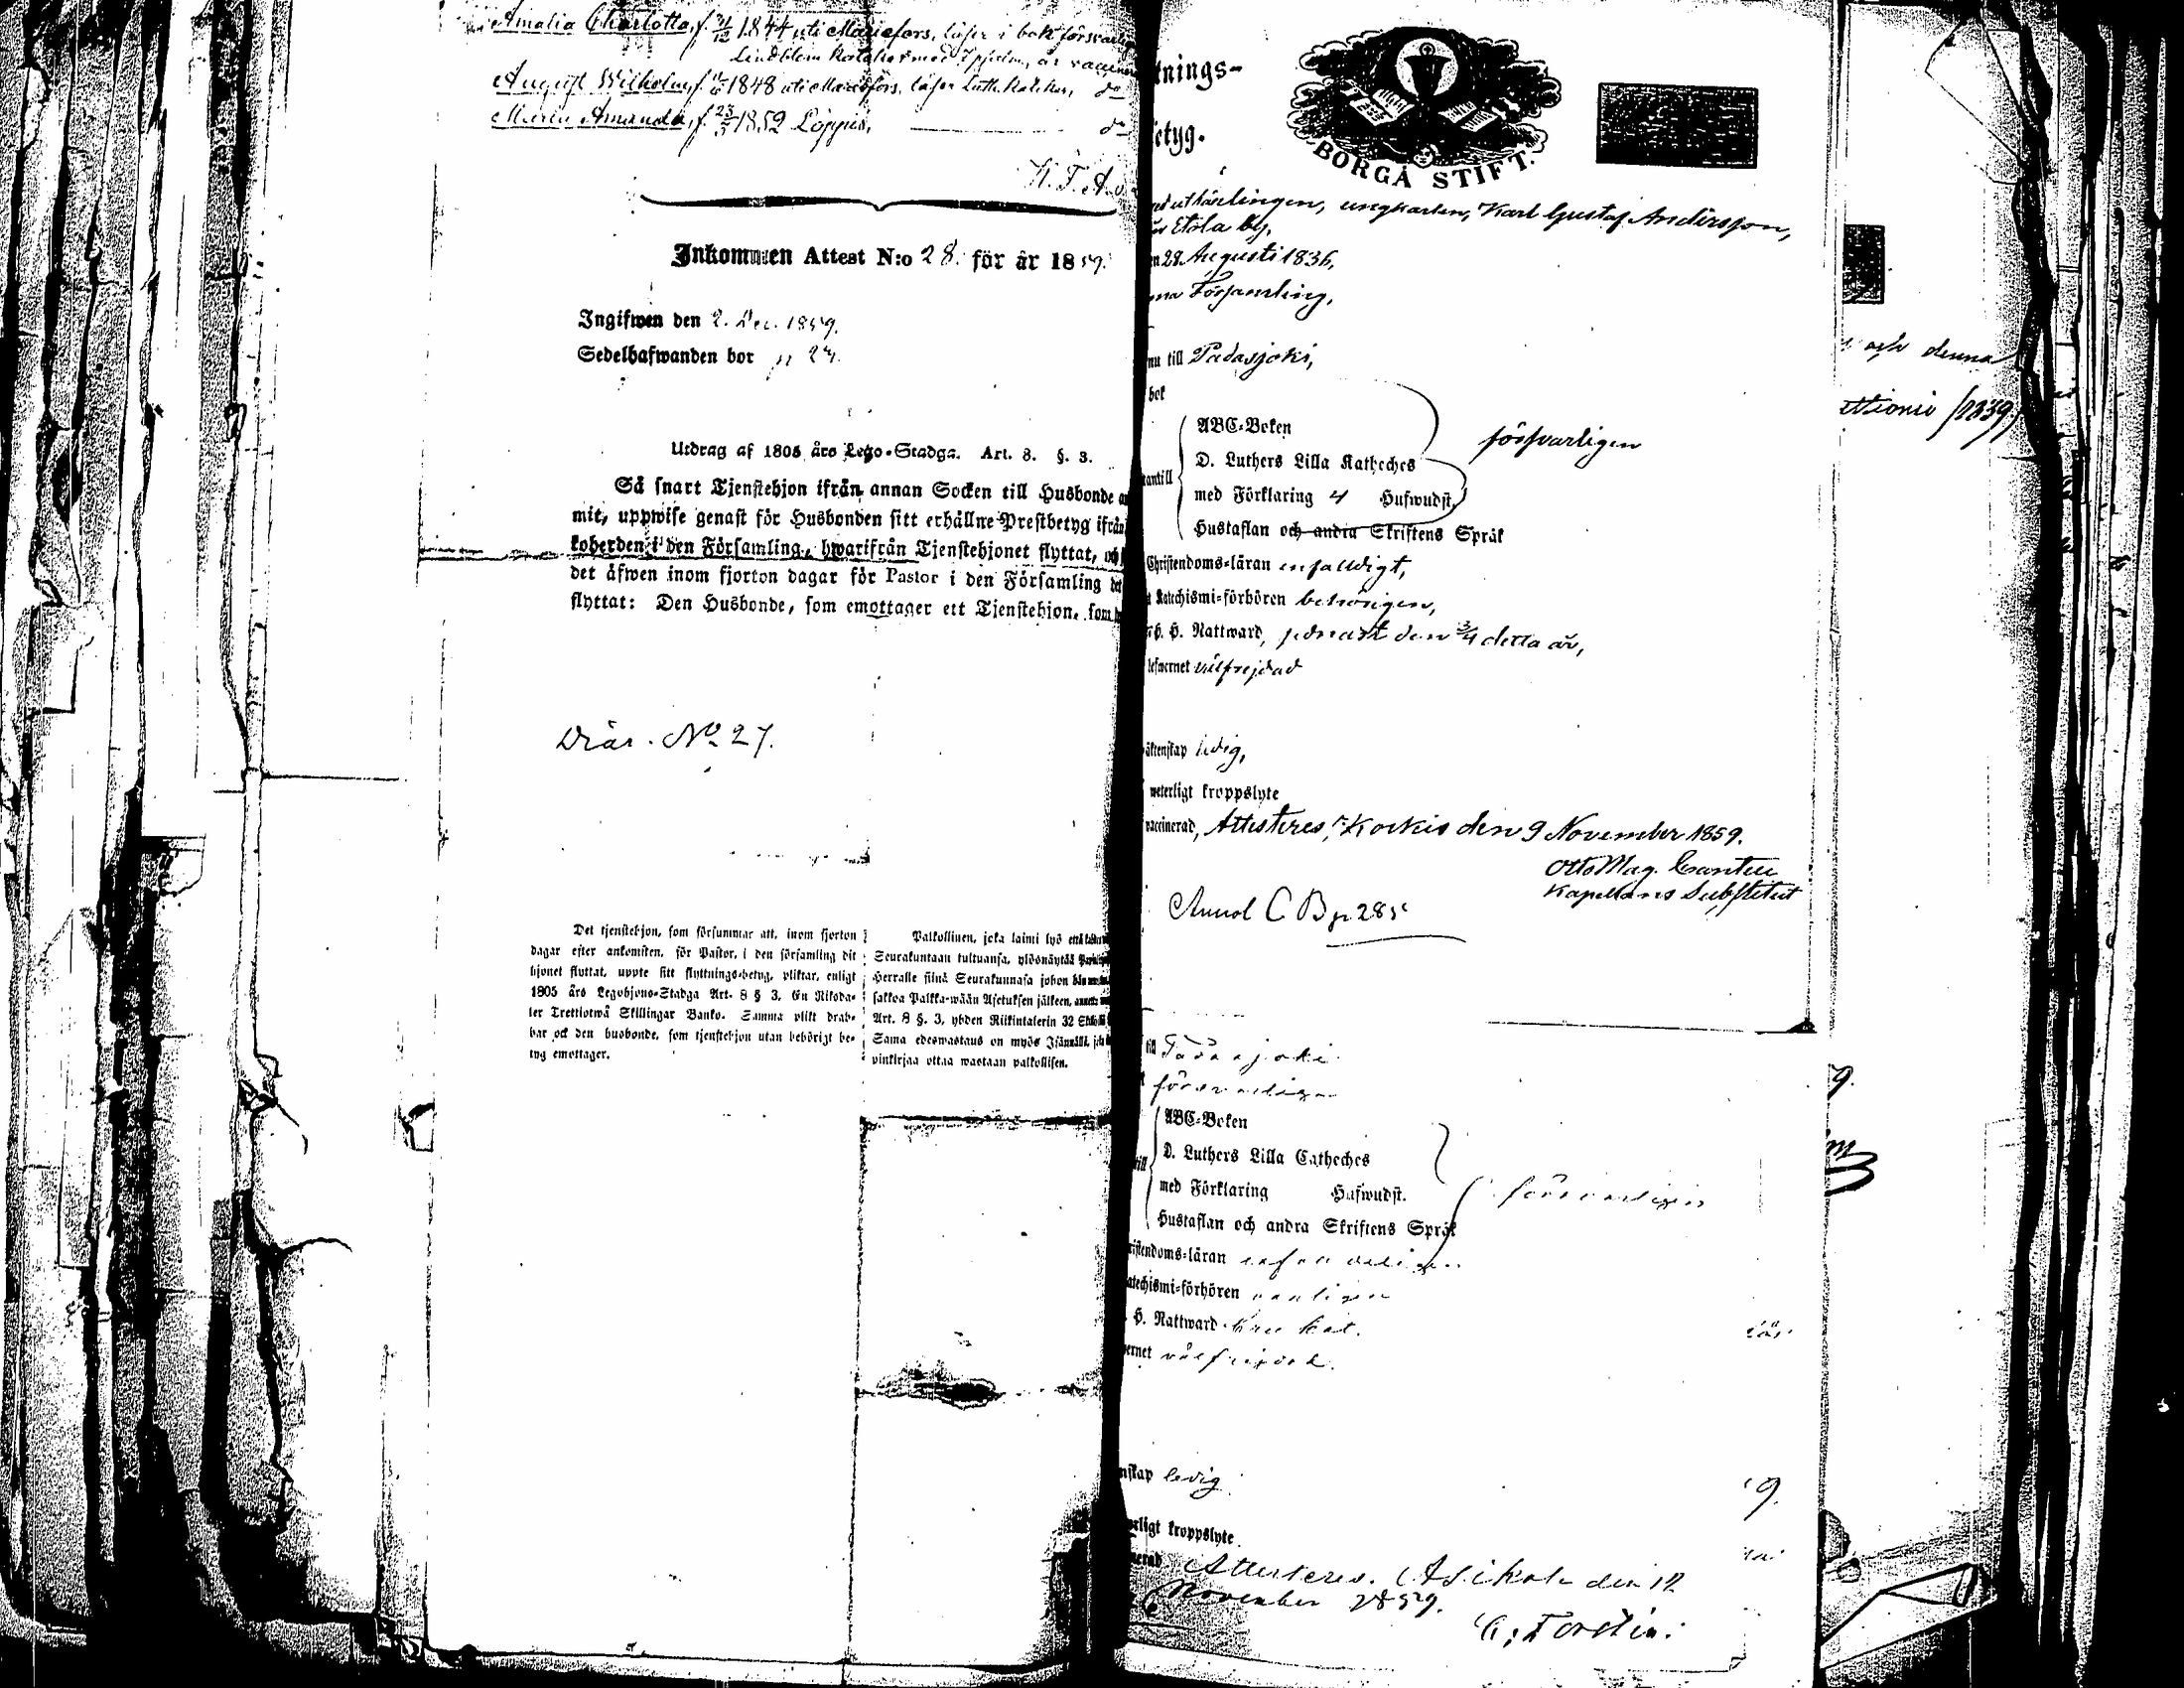 Amalia Charlotta, f. 1844 uti Mariefors, läser i bok försvarlig
August Wilhelm, f. 1848 uti Mariefors, läser Luth. Kateches, do
Maria Amanda, f. 23/3 1852 Loppis, do
Inkommen Attest N:o 28. för år 1859.
Ingifwen den 2. Dec. 1859.
Sedelhafwanden bor
Utdrag af 1805 års Lego-Stadga. Art. 8. §. 3.
Så snart Tjenstehjon ifrån annan Socken till Husbonde
mit, uppwise genast för Husbonden sitt erhållne Prestbetyg ifrån
koherden i den Församling, hwarifrån Tjenstehjonet flyttat, och
det äfwen inom fjorton dagar för Pastor i den Församling
flyttat: Den Husbonde, som emottager ett Tjenstehjon, som
Diar. No 27.
Det tjenstehjon, som försummar att, inom fjorton
dagar efter ankomsten, för Pastor, i den församling dit
hjonet flyttat, uppte sitt flyttnings-betyg, pliktar, enligt
1805 års Legohjons-Stadga Art. 8 § 3, En Riksda-
ler Trettiotwå Skillingar Banko. Samma plikt drab-
bar ock den husbonde, som tjenstehjon utan behörigt be-
tyg emottager.
Palkollinen, joka laimi lyö
Seurakuntaan tultuansa, ylösnäytää
Herralle siinä Seurakunnasa johon
sakkoa Palkka-wään Asetuksen jälkeen,
Art. 8 §. 3, yhden Riikintalerin 32
Sama edeswastaus on myös Isännällä,
pinkirjaa ottaa wastaan palkollisen.
tnings-
etyg.
BORGÅ STIFT.
ungkarlen, Karl Gustaf Andersson,
Etola by,
28 Augusti 1836,
Församling,
nu till Padasjoki,
bok
ABC-Boken
försvarligen
D. Luthers Lilla Katheches
med Förklaring 4 Hufwudst.
Hustaflan och andra Skriftens Språk
Christendoms-läran enfalldigt,
Katechismi-förhören behörigen,
H. H. Nattward, sednast den 3/4 detta år,
lefwernet välfrejdad
äktenskap ledig,
weterligt kroppslyte
vaccinerad, Attesteras, Koskis den 9 November 1859.
Otto Mag.
Kapellans Substitut
Annot C B p 285
och denna
till Padasjoki
försvarligen
ABC-Boken
D. Luthers Lilla Catheches
med Förklaring Hufwudst.
försvarligen
Hustaflan och andra Skriftens Språk
Christendoms-läran
Catechismi-förhören vanligen
H. Nattward
välfrejdad.
ledig
kroppslyte
Attesteras. Asikala den 12
November 1859.